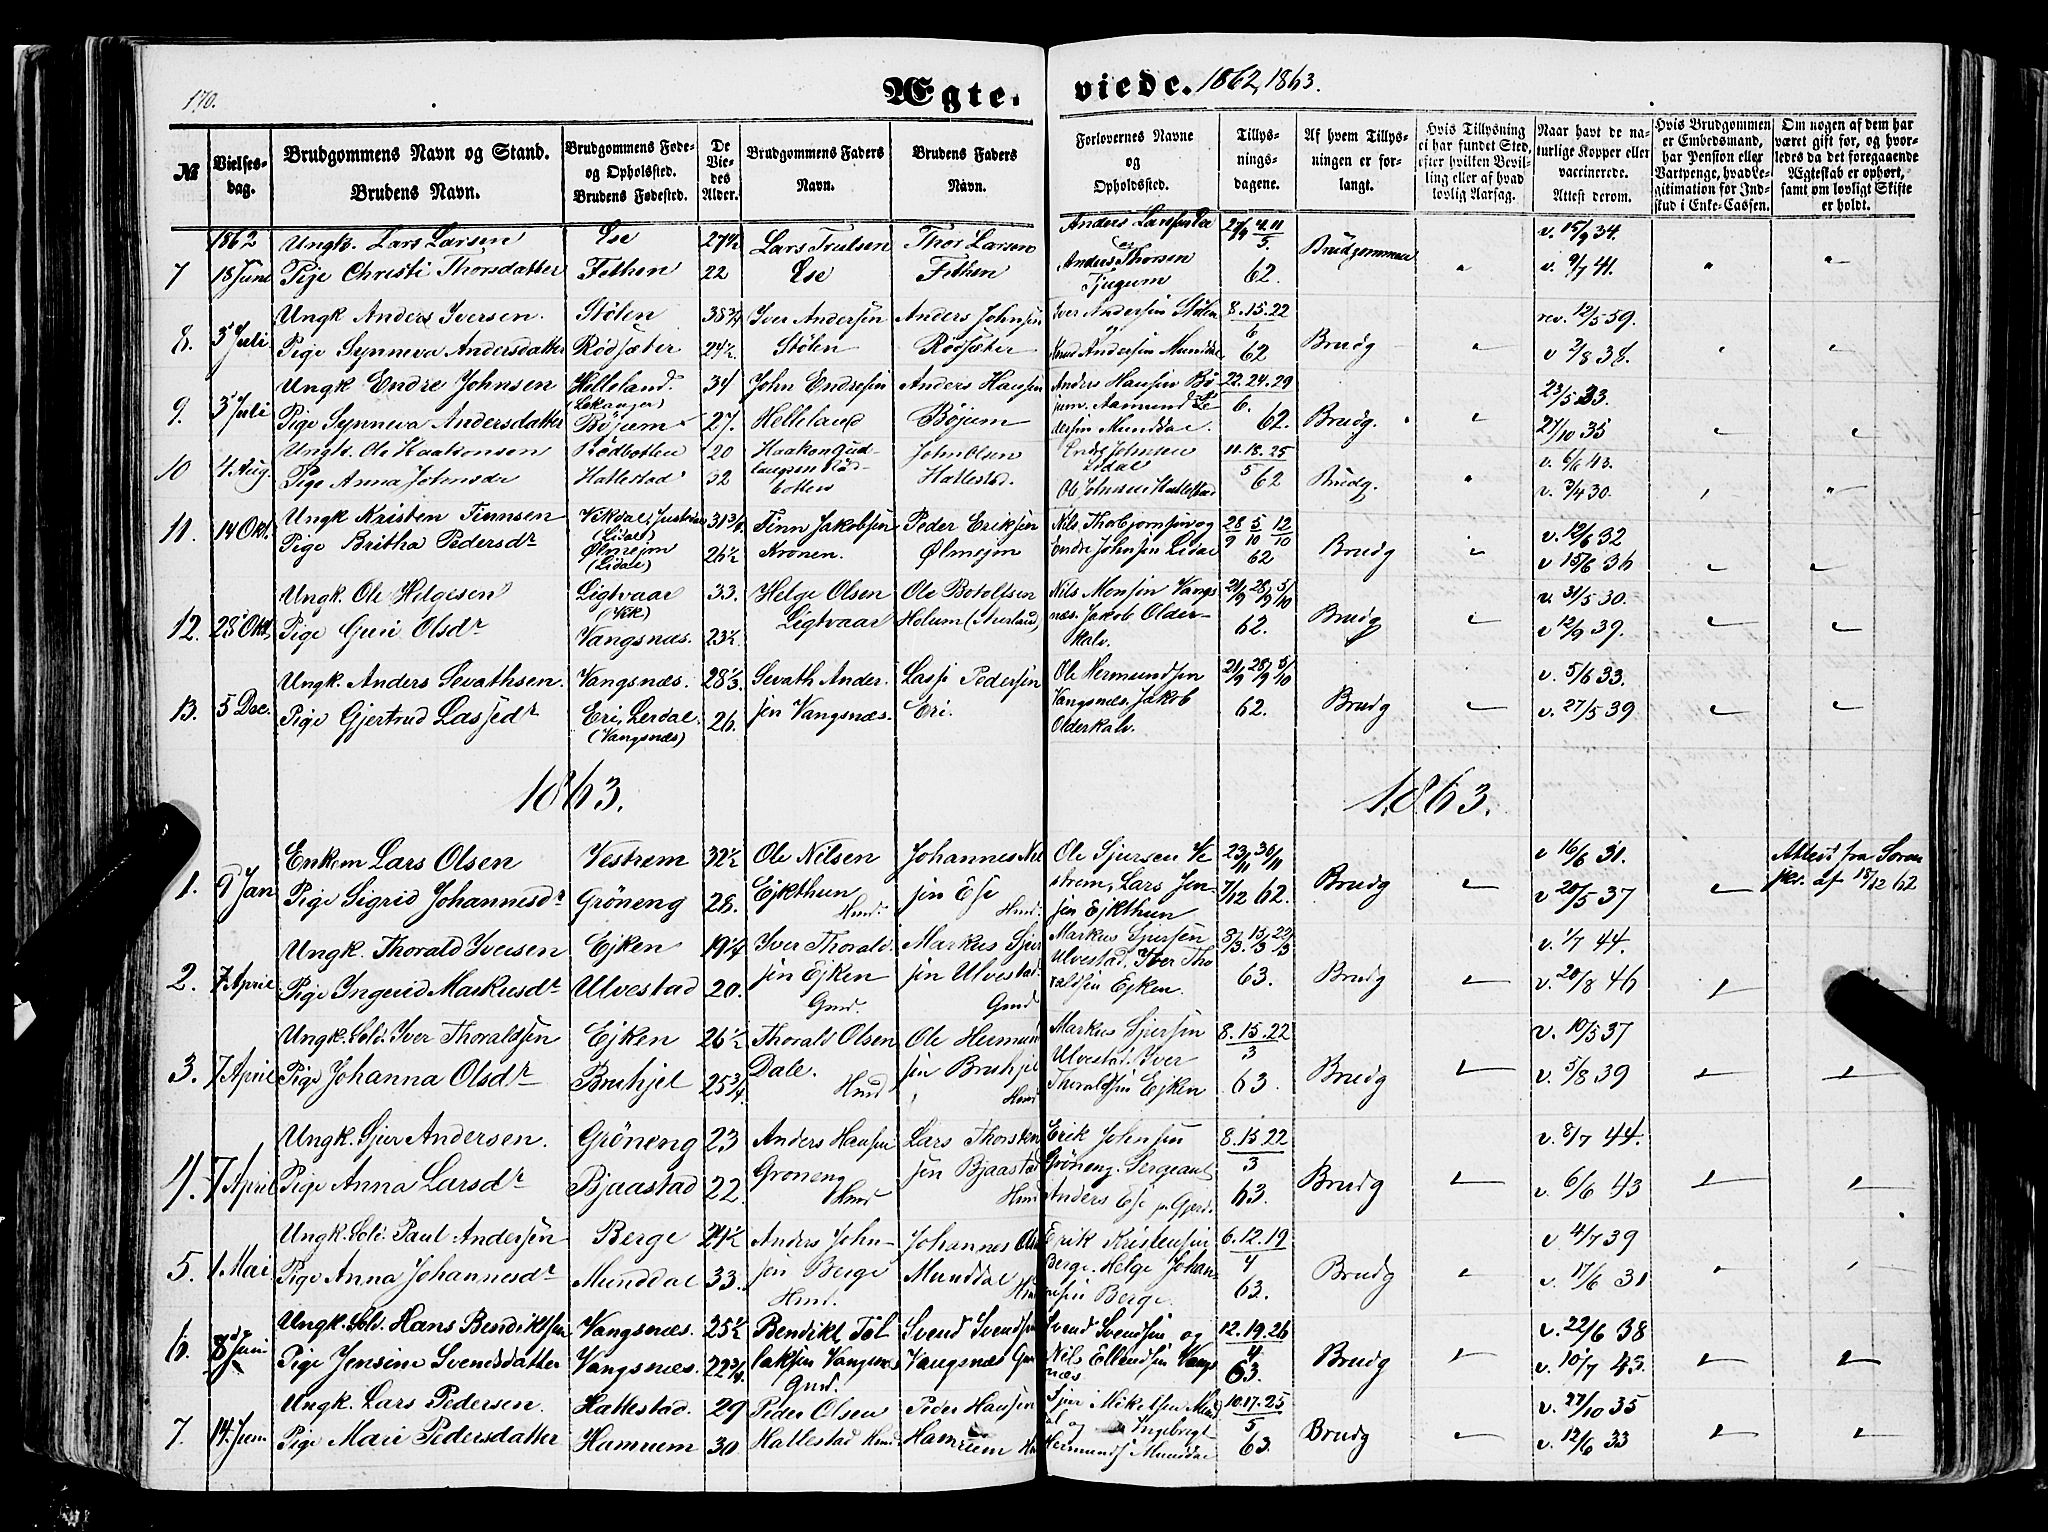 170.
Ægte-
viede. 1862, 1863.
№
Vielses-
dag.
Brudgommens Navn og Stand.
Brudens Navn.
Brudgommens Føde-
og Opholsted.
Brudens Fødested.
De
Vie-
des
Alder.
Brudgommens Faders
Navn.
Brudens Faders
Navn.
Forlovernes Navne
og
Opholdssted.
Tillys-
nings-
dagene.
Af hvem Tillys-
ningen er for-
langt.
Hvis Tillysning
ei har fundet Sted,
efter hvilken Bevil-
ling eller af hvad
lovlig Aarsag.
Naar havt de na-
turlige Kopper eller
vaccinerede.
Attest derom.
Hvis Brudgommen
er Embedsmand,
har Pension eller
Vartpenge, hvad Le-
gitimation for Ind-
skud i Enke-Cassen.
Om nogen af dem har
været gift før, og hvor-
ledes da det foregaaende
Ægteskab er ophørt,
samt om lovligt Skifte
er holdt.
1862 Ungk. Lars Larsen Ese 27½ Lars Trulsen Thor Larsen Anders Larsen v. 15/9 34.
7 18 Juni Pige Christi Thorsdatter Fethen 22 Ese Fethen Anders Thorsen Tjugum 62. Brudgommen v. 9/7 41.
Ungk Anders Iversen. Stølen 38¾ Iver Andersen Anders Johnsen Iver Andersen Stølen 8.15.22 rev. 12/5 59.
8. 3 Juli Pige Synneva Andersdatter Rødsæter 24½ Stølen Rødsæter Knud Andersen Munddal 6 62 Brudg v 2/8 38.
Ungk Endre Johnsen Helleland. (Lekanger) 34 John Endresen Anders Hansen Anders Hansen Bø- 22.24.29 23/5 33.
9. 3 Juli Pige Synneva Andersdatter Bøjum 27. Helleland Bøjum jum. Aamund Pe- dersen Munddal. 6. 62. Brudg. 27/10 35
Ungk. Ole Haakonsen Rødbotten 20 Haakon Gud- John Olsen Endre Johnsen Lidal 11.18.25 v. 6/6 43.
10 4 Aug. Pige Anna Johnsdr 32 Hallestad Hallestad. Ole Johnsen Hallestad 5 62 Brudg. v. 3/4 30.
Ungk Kristen Finnsen Vikdal, Justedal (Lidal) 31¾ Finn Jakobsen Peder Eriksen Nils Thorbjornsen og 28/9 5/10 12/10 v. 12/6 32
11. 14 Okt. Pige Britha Pedersdr Ølmejm (Lidal) 26½ Kronen. Ølmejm Endre Johnsen Lidal 62 Brudg v 15/6 36
Ungk. Ole Helgesen Ligtvaar (Vik) 33. Helge Olsen Ole Botolfsen Nils Monsen Vangs- 21/9 28/9 5/10 v. 31/5 30.
12. 23 Okt. Pige Guri Olsdr Vangsnæs. 23½ Ligtvaar Helum (Aurland) næs. Jakob Older- skalv. 62. Brudg v 12/9 39.
Ungk. Anders Sevathsen. Vangsnæs. 28⅓. Sevath Ander- Lasse Pedersen Ole Hermundsen 21/9 28/9 5/10 v. 5/6 33.
13. 5 Dec. Pige Gjertrud Lassedr Eri, Lerdal. (Vangsnæs) 26. sen Vangsnæs. Eri. Vangsnæs. Jakob Olderskalv. 62. Brudg v. 27/5 39
1863. 1863.
Enkem Lars Olsen Vestrem 32½ Ole Nilsen Johannes Nil- Ole Sjursen Ve- 23/11 30/11 v 16/6 31. Attest fra
1. 9 Jan Pige Sigrid Johannesdr Grøneng 28. Ejkthun Hmd. sen Ese Hmd. strem, Lars Jen- sen Ejkthun 7/12 62. Brudg v 20/5 37 af 18/12 62
Ungk. Thorald Iversen Ejken 19¼ Iver Thorald- Markus Sjur- Markus Sjursen 8/3. 15/3 22/3 v. 1/7 44.
2. 7 April Pige Ingerid Markusdr Ulvestad 20. sen Ejken Gmd. sen Ulvestad. Gmd Ulvestad. Iver Tho- raldsen Ejken. 63. Brudg v. 20/8 46
Ungk. Sold. Iver Thoraldsen Ejken 26½ Thorald Olsen Ole Hermun- Markus Sjursen 8.15.22 v. 10/5 37
3. 7 April Pige Johanna Olsdr Bruhjel 25¾. Dale. Hmd sen Bruhjel Hmd Ulvestad. Iver Thoraldsen Ejken 3 63. Brudg v. 5/8 39
Ungk. Sjur Andersen. Grøneng 23 Anders Hansen Lars Thorsten- Erik Johnsen 8.15.22 v. 8/7 44.
4. 7 April Pige Anna Larsdr Bjaastad 22. Grøneng Hmd sen Bjaastad Hmd Grøneng. Sergeant Anders Ese 3 63. Brudg v. 6/6 43
Ungk. Sold. Paul Andersen Berge 24½ Anders John- Johannes Erik Kristensen 6.12.19 v 4/7 39
5. 1 Mai Pige Anna Johannesdr Munddal 33. sen Berge Hmd. Munddal Berge. Helge Johan- nesen Berge. 4 63. Brudg v. 17/6 31
Ungk. Sold. Hans Bendiktsen Vangsnæs. 25½ Bendikt Tol- Svend Svendsen Svend Svendsen og 12.19.26 v. 22/6 38
6. 8 Juni Pige Jensine Svendsdatter Vangsnæs. 22¾. laksen Vangsnæs Gmd. Vangsnæs Nils Ellendsen Vangs- næs 4 63. Brudg v. 10/7 43.
Ungk. Lars Pedersen. Hallestad. 29 Peder Olsen Peder Hansen Sjur Mikelsen 10.17.25 v. 27/10 35
7. 14. Juni Pige Mari Pedersdatter Hamrum 30. Hallestad Hmd Hamrum og Ingebrigt Hermunds. Munddal 5 63. Brudg v. 12/6 33